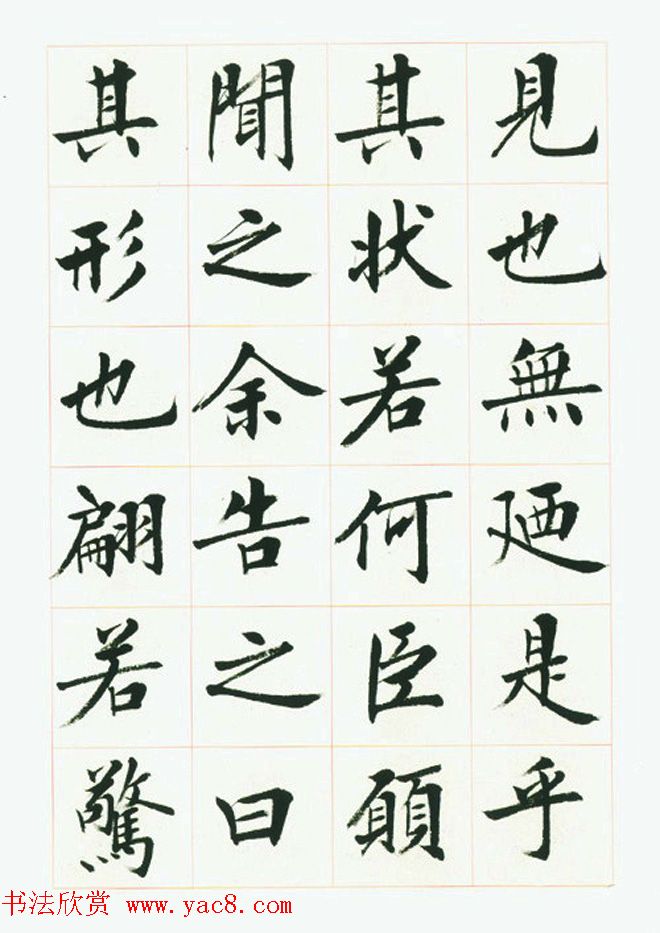 見也無廼是乎
其狀若何臣願
聞之余告之曰
其形也翩若驚
书法欣赏 www.yac8.com